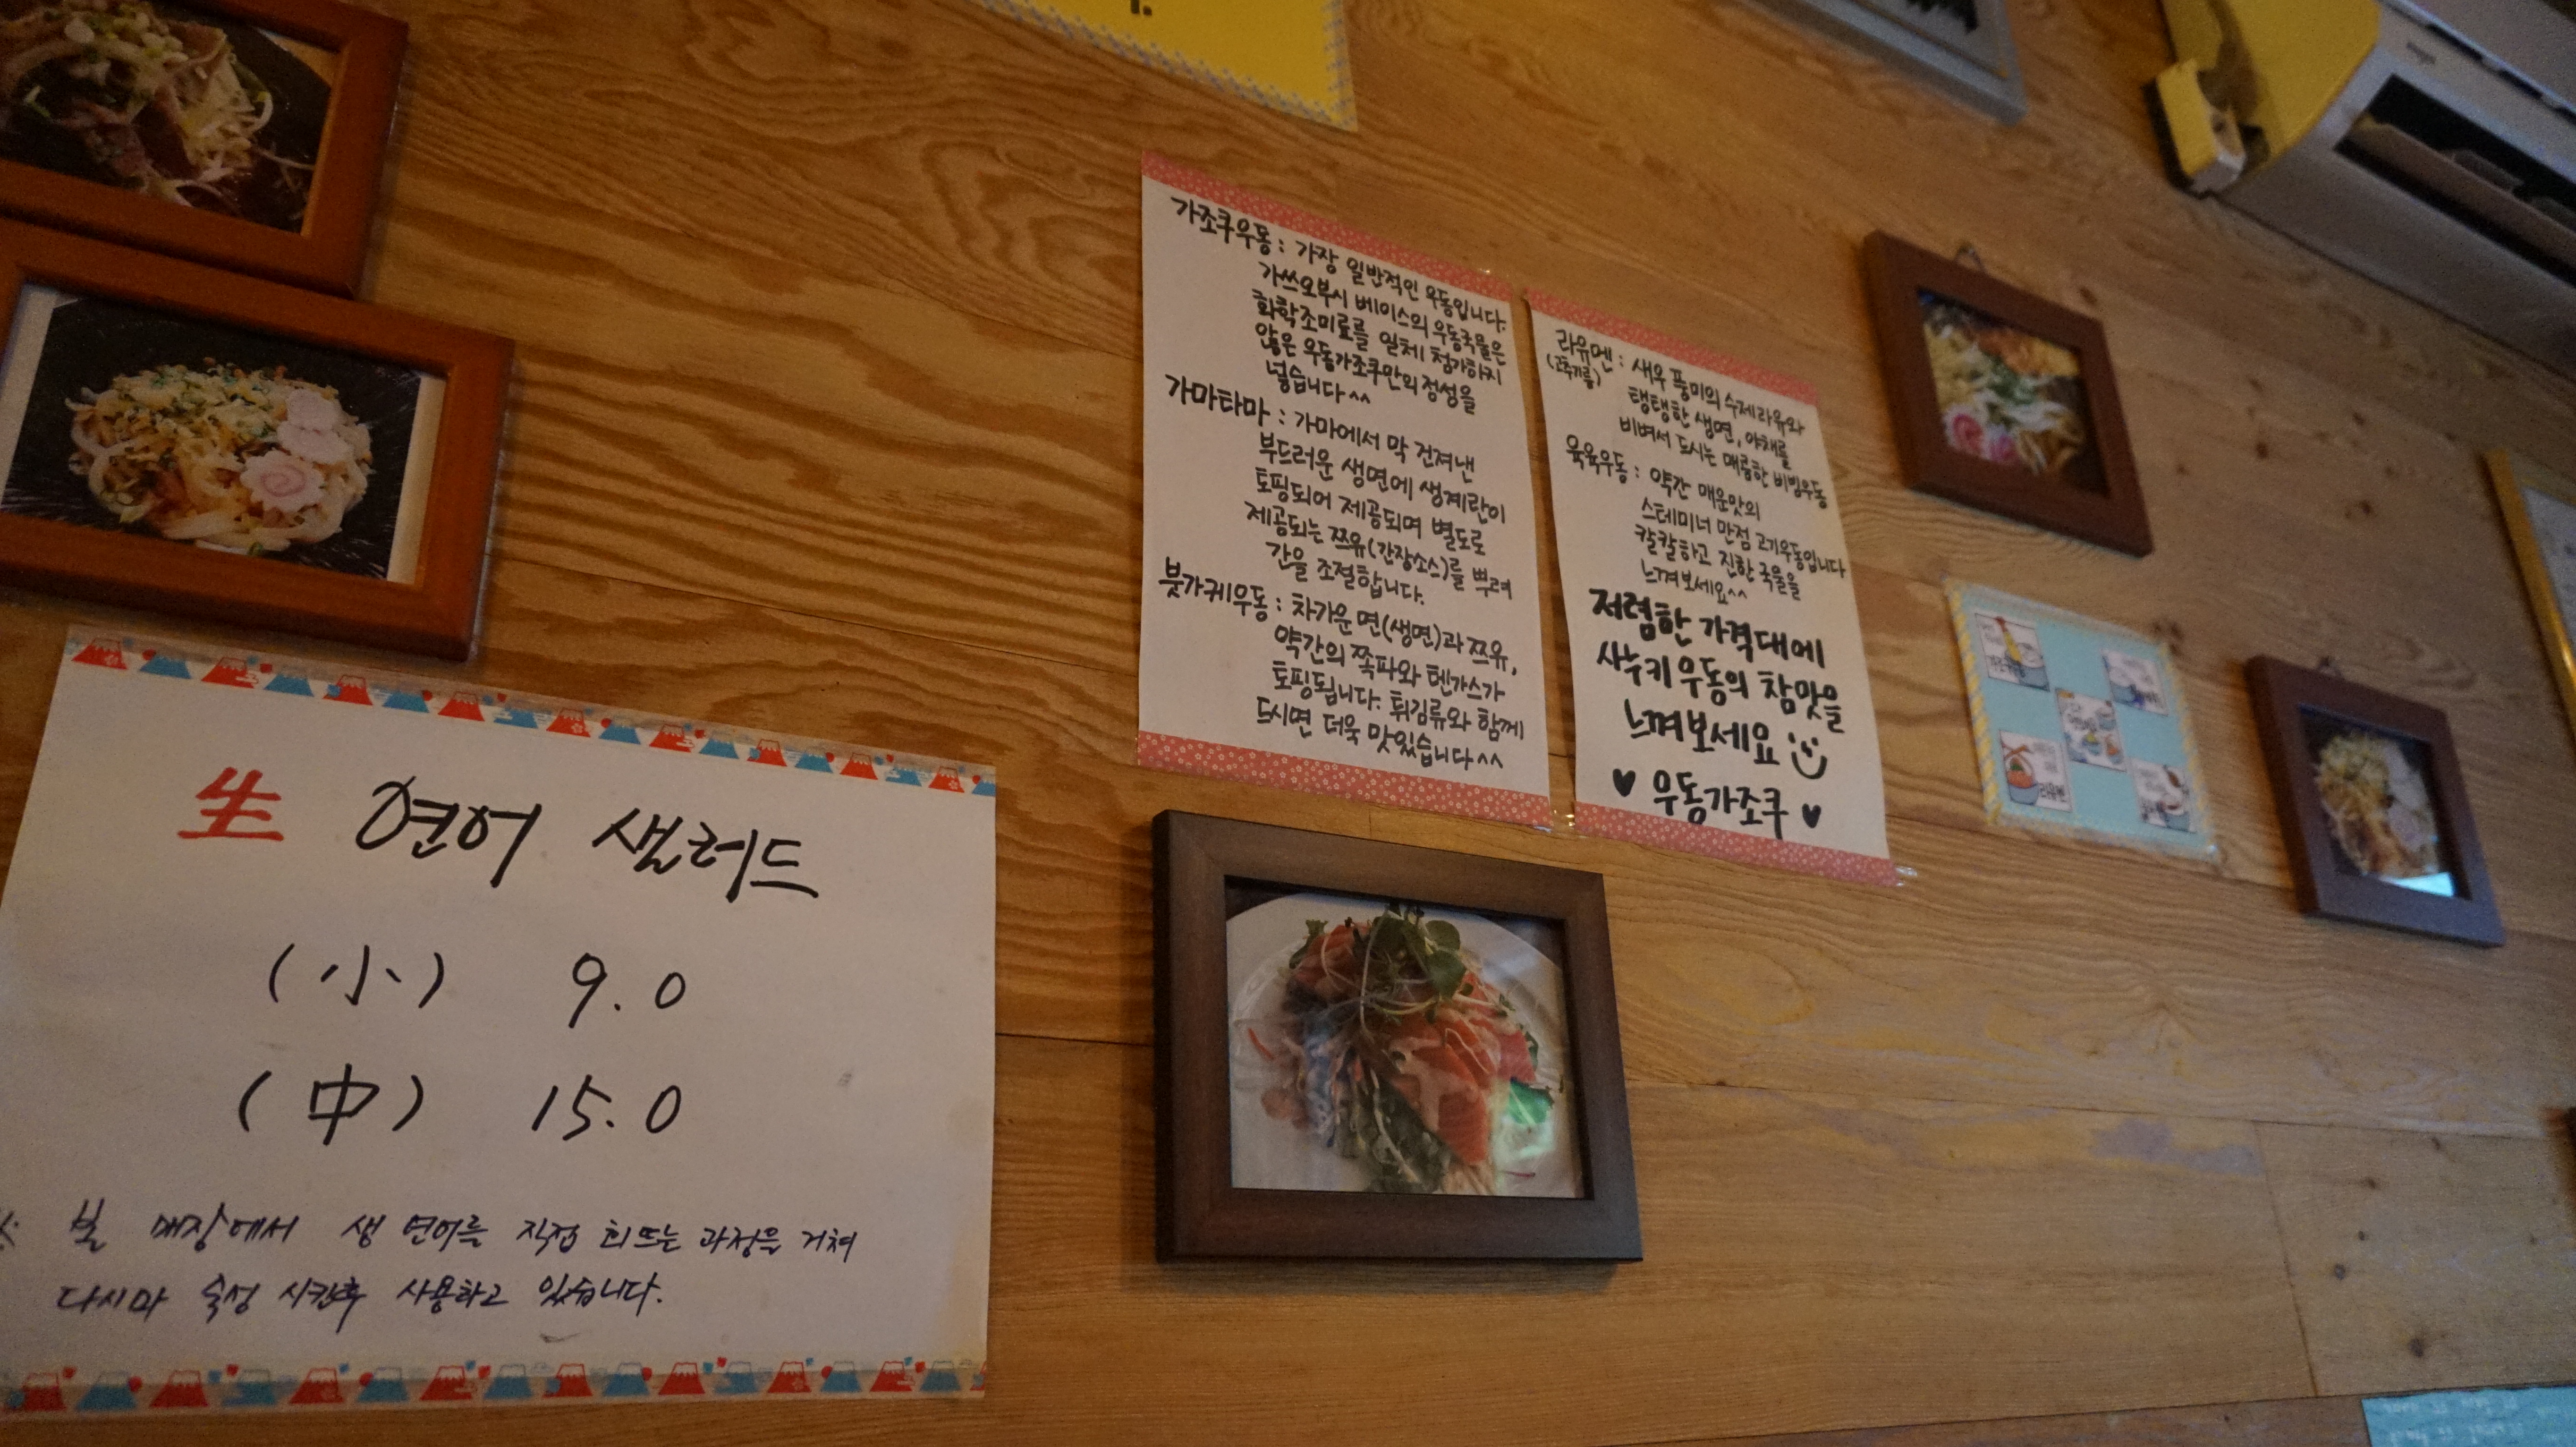 가조쿠우동 : 가장 일반적인 우동입니다.
가쓰오부시 베이스의 우동국물은
화학조미료를 일체 첨가하지
않은 우동가조쿠만의 정성을
넣습니다^^
가마타마 : 가마에서 막 건져낸
부드러운 생면에 생계란이
토핑되어 제공되며 별도로
제공되는 쯔유(간장소스)를 뿌려
간을 조절합니다.
붓가케우동 : 차가운 면(생면)과 쯔유,
약간의 쪽파와 텐가스가
토핑됩니다. 튀김류와 함께
드시면 더욱 맛있습니다^^
라유멘 : 새우 풍미의 수제라유와
(고추기름)
탱탱한 생면, 야채를
비벼서 드시는 매콤한 비빔우동
육육우동 : 약간 매운맛의
스테미너 만점 고기우동입니다
칼칼하고 진한 국물을
느껴보세요^^
저렴한 가격대에
사누키 우동의 참맛을
느껴보세요
♥ 우동가조쿠 ♥
生 연어 샐러드
(小) 9.0
(中) 15.0
※ 본 매장에서 생 연어를 직접 회뜨는 과정을 거쳐
다시마 숙성 시킨후 사용하고 있습니다.
라유멘